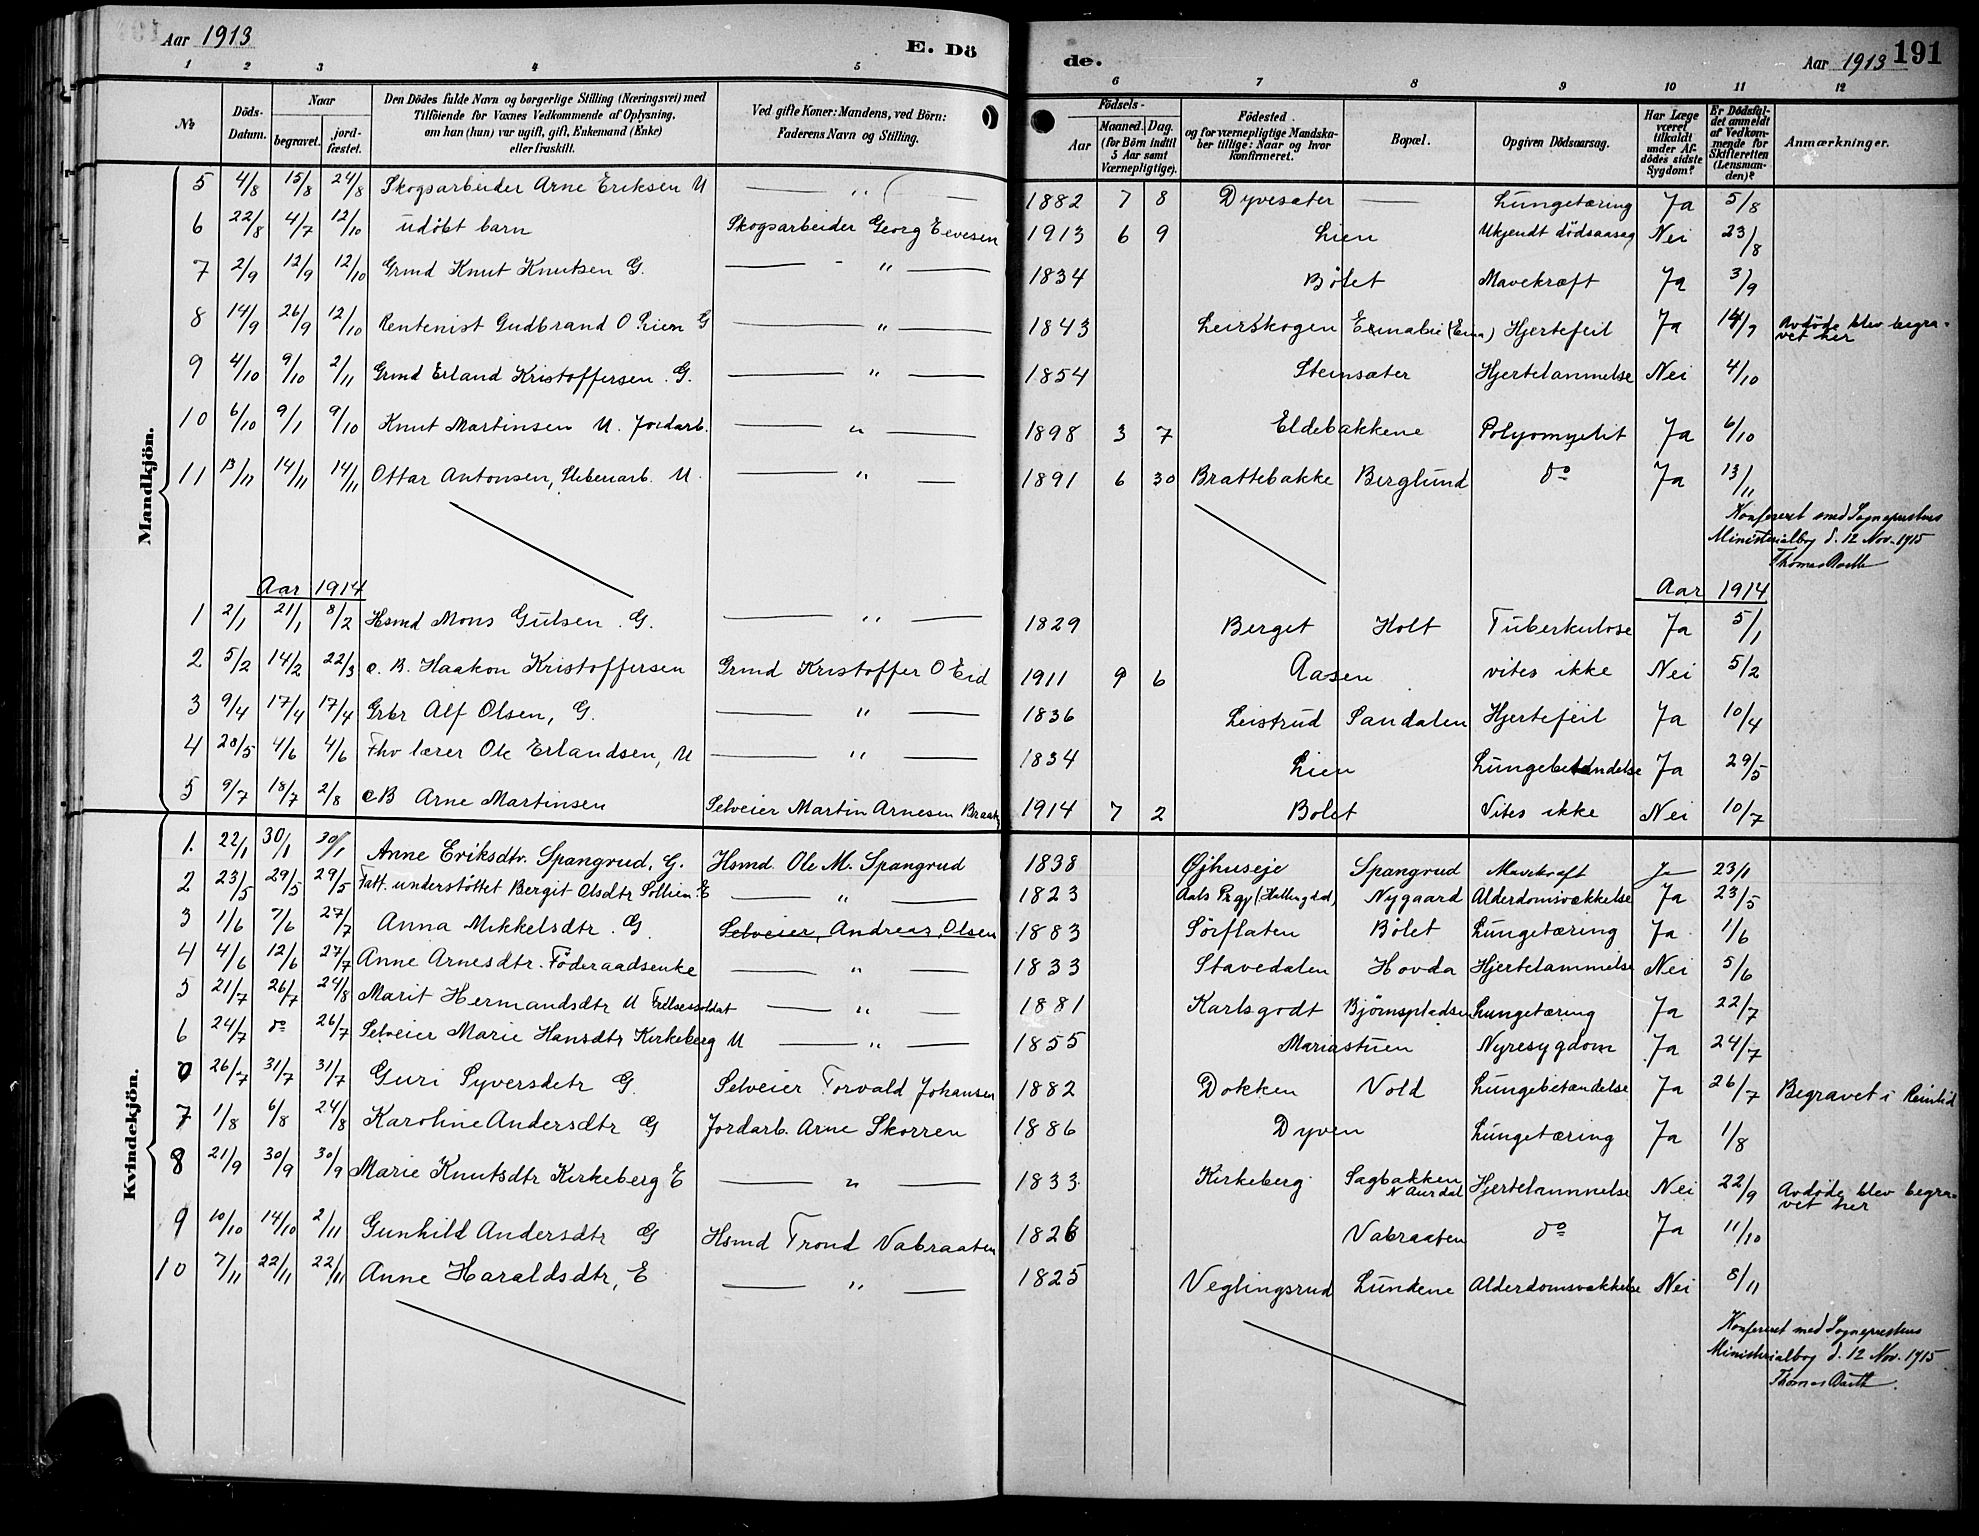 Aar 1913 E. Dö de. Aar 1913 191
1 2 3 4 5 6 7 8 9 10 11 12
№ Döds-Datum. Naar begravet. jordfæstet. Den Dödes fulde Navn og borgerlige Stilling (Næringsvei) med Tilföiende for Voxnes Vedkommende af Oplysning, om han (hun) var ugift, gift, Enkemand (Enke) eller fraskilt. Ved gifte Koner: Mandens, ved Börn: Faderens Navn og Stilling. Födsels- Aar Maaned. Dag. (for Börn indtil 5 Aar samt Værnepligtige). Födested og for værnepligtige Mandskaber tillige: Naar og hvor konfirmeret. Bopæl. Opgiven Dödsaarsag. Har Læge været tilkaldt under Afdödes sidste Sygdom? Er Dödsfaldet anmeldt af Vedkommende for Skifteretten (Lensmanden)? Anmærkninger.
Mandkjön.
5 4/8 15/8 24/8 Skogsarbeider Arne Eriksen U — " — 1882 7 8 Dyvesæter — Lungetæring Ja 5/8
6 22/8 4/7 12/10 udöbt barn Skogsarbeider Georg Evesen 1913 6 9 Lien Ukjendt dödsaarsag Nei 23/8
7 2/9 12/9 12/10 Grmd Knut Knutsen G. — " — 1834 Bölet Mavekræft Ja 3/9
8 14/9 26/9 12/10 Rentenist Gudbrand O Lien G — " — 1843 Leirskogen (Eina) Hjertefeil Ja 14/9 Avdöde blev begravet her
9 4/10 9/10 2/11 Grmd Erland Kristoffersen. G. — " — 1854 Steinsæter Hjertelammelse Nei 4/10
10 6/10 9/1 9/10 Knut Martinsen U. Jordarb. — " — 1898 3 7 Eldebakkene Polyomyelit Ja 6/10
11 13/11 14/11 14/11 Ottar Antonsen, U. — " — 1891 6 30 Brattebakke Berglund do Ja 13/11
Konfereret med Sogneprestens
Ministerialbog d. 12 Nov. 1915
Thomas Barth
Aar 1914 Aar 1914
1 2/1 21/1 8/2 Hsmd Mons Gulsen. G. — " — 1829 Berget Holt Tuberkulose Ja 5/1
2 5/2 14/2 22/3 e. B. Haakon Kristoffersen Grmd Kristoffer O Eid 1911 9 6 Aasen vites ikke Nei 5/2
3 9/4 17/4 17/4 Grbr Alf Olsen, G. — " — 1836 Leistrud Sandalen Hjertefeil Ja 10/4
4 28/5 4/6 4/6 Fhv lærer Ole Erlandsen, U — " — 1834 Lien Lungebetændelse Ja 29/5
5 9/7 18/7 2/8 eB Arne Martinsen Selveier Martin Arnesen 1914 7 2 Bölet Vites ikke Nei 10/7
Kvindekjön.
1. 22/1 30/1 30/1 Anne Eriksdtr. Spangrud, G. Hsmd. Ole M. Spangrud 1838 Øjhuseje Spangrud Mavekræft Ja 23/1
2 23/5 29/5 29/5 Fatt. understöttet Bergit Olsdtr Sollien. E — " — 1823 Aals Prgj (Hallingdal) Nygaard Alderdomsvækkelse Ja 23/5
3 1/6 7/6 27/7 Anna Mikkelsdtr. G. Selveier, Andreas, Olsen 1883 Sörflaten Bölet Lungetæring Ja 1/6
4 4/6 12/6 27/7 Anne Arnesdtr. Föderaadsenke — " — 1833 Stavedalen Hovda Hjertelammelse Nei 5/6
5 21/7 26/7 24/8 Marit Hermandsdtr U Frelsessoldat — " — 1881 Karlsgodt Bjørnspladsen Lungetæring Ja 22/7
6 24/7 do 26/7 Selveier Marie Hansdtr Kirkeberg U — " — 1855 Mariastuen Nyresygdom Ja 24/7
0 26/7 31/7 31/7 Guri Syversdtr G. Selveier Torvald Johansen 1882 Dokken Vold Lungebetændelse Ja 26/7 Begravet i Reinlid
7 1/8 6/8 24/8 Karoline Andersdtr G Jordarb. Arne Skorren 1886 Dyven Lungetæring Ja 1/8
8 21/9 30/9 30/9 Marie Knutsdtr Kirkeberg E — " — 1833 Kirkeberg Sagbakken N Aurdal Hjertelammelse Nei 22/9 Avdöde blev begravet her
9 10/10 14/10 2/11 Gunhild Andersdtr G Hsmd Trond Vabraaten 1826 Vabraaten do Ja 11/10
10 7/11 22/11 22/11 Anne Haraldsdtr, E — " — 1825 Veglingsrud Lundene Alderdomsvækkelse Nei 8/11
Konfereret med Sogneprestens
Ministerialbog d. 12 Nov. 1915.
Thomas Barth.